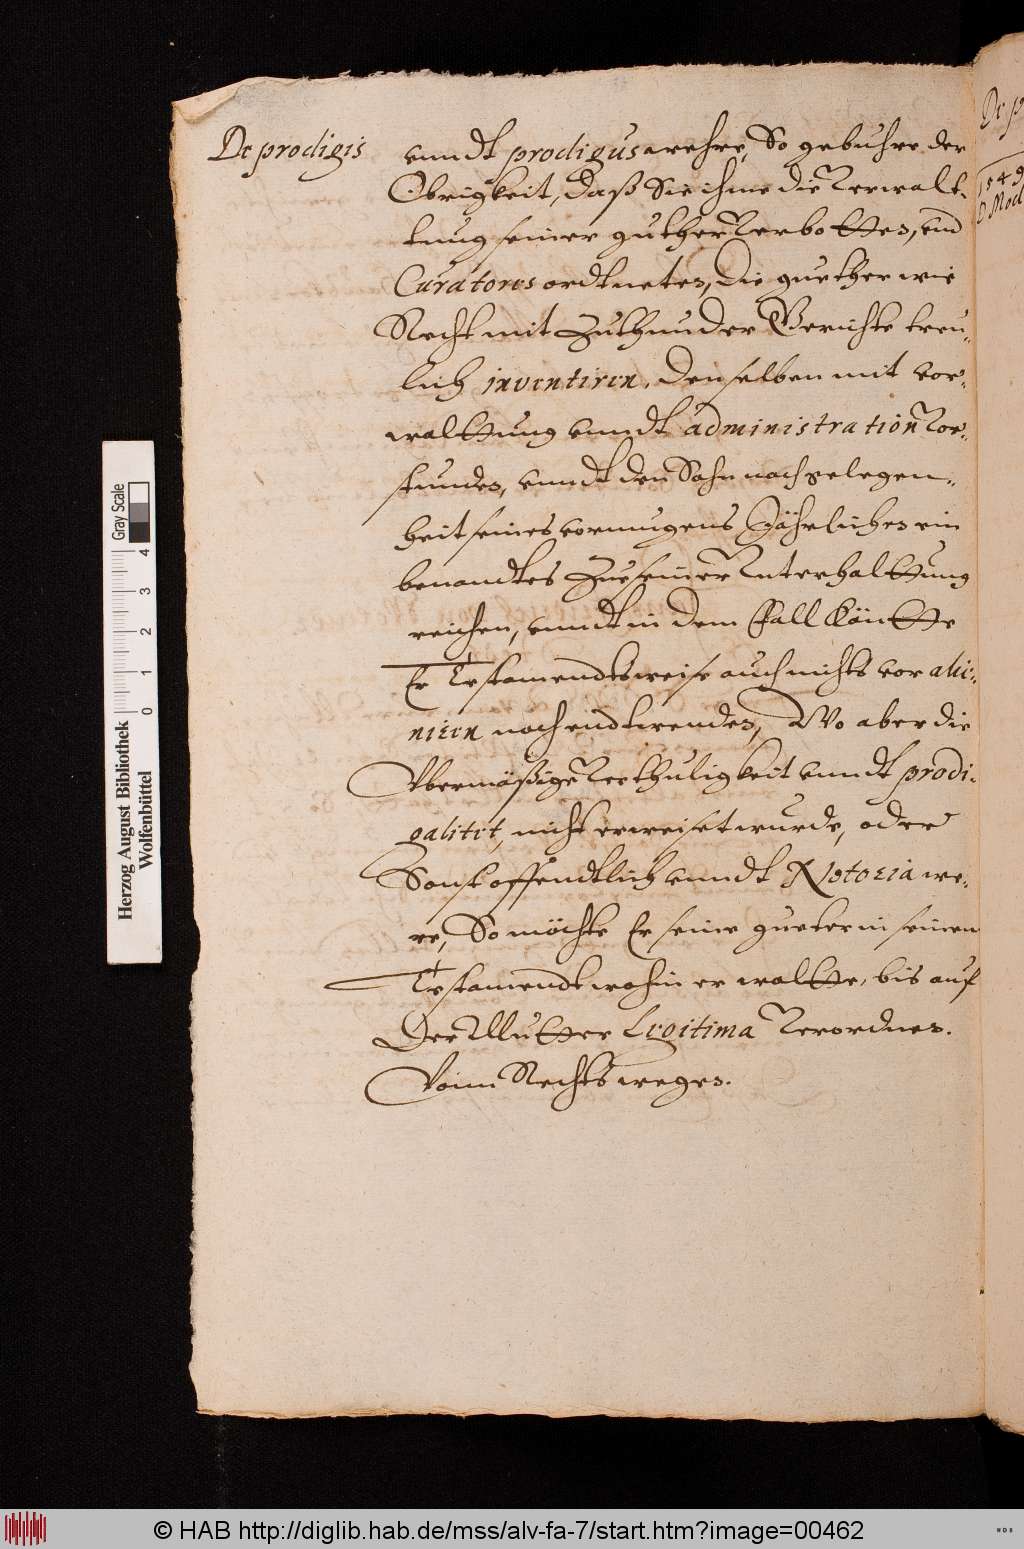 De prodigis
vnndt prodigus wehre, So gebuhre der
Obrigkeit, Daß Sie ihme die Verwalt-
tung seiner guther Verbotten, vnd
Curatores ordtneten, Die guether wie
Recht mit Zuthun der Gerichte treu-
lich inventiren, Denselben mit vor-
waltung vnndt administration Vor-
stunden, vnndt den Sohn nach gelegen-
heit seines vormugens Jährlichen ein
benandtes Zue seiner Vnterhalttung
reichen, vnndt in dem Fall köntte
Er Testamendtsweise auch nichts vor alie-
niren noch endtwenden, Wo aber die
Vbermäßige Verthuligkeit vnndt prodi-
galitet, nicht erweiset wurde, oder
Sonst offendtlich vnndt Notoria we-
re, So möchte Er seine gueter in seinem
Testamendt wohin er woltte, bis auf
Der Mutter Legitima Verordnen.
Vonn Rechts wegen.
De p
1549
D Mod
Herzog August Bibliothek
Wolfenbüttel
0 1 2 3 4
Gray Scale
© HAB http://diglib.hab.de/mss/alv-fa-7/start.htm?image=00462